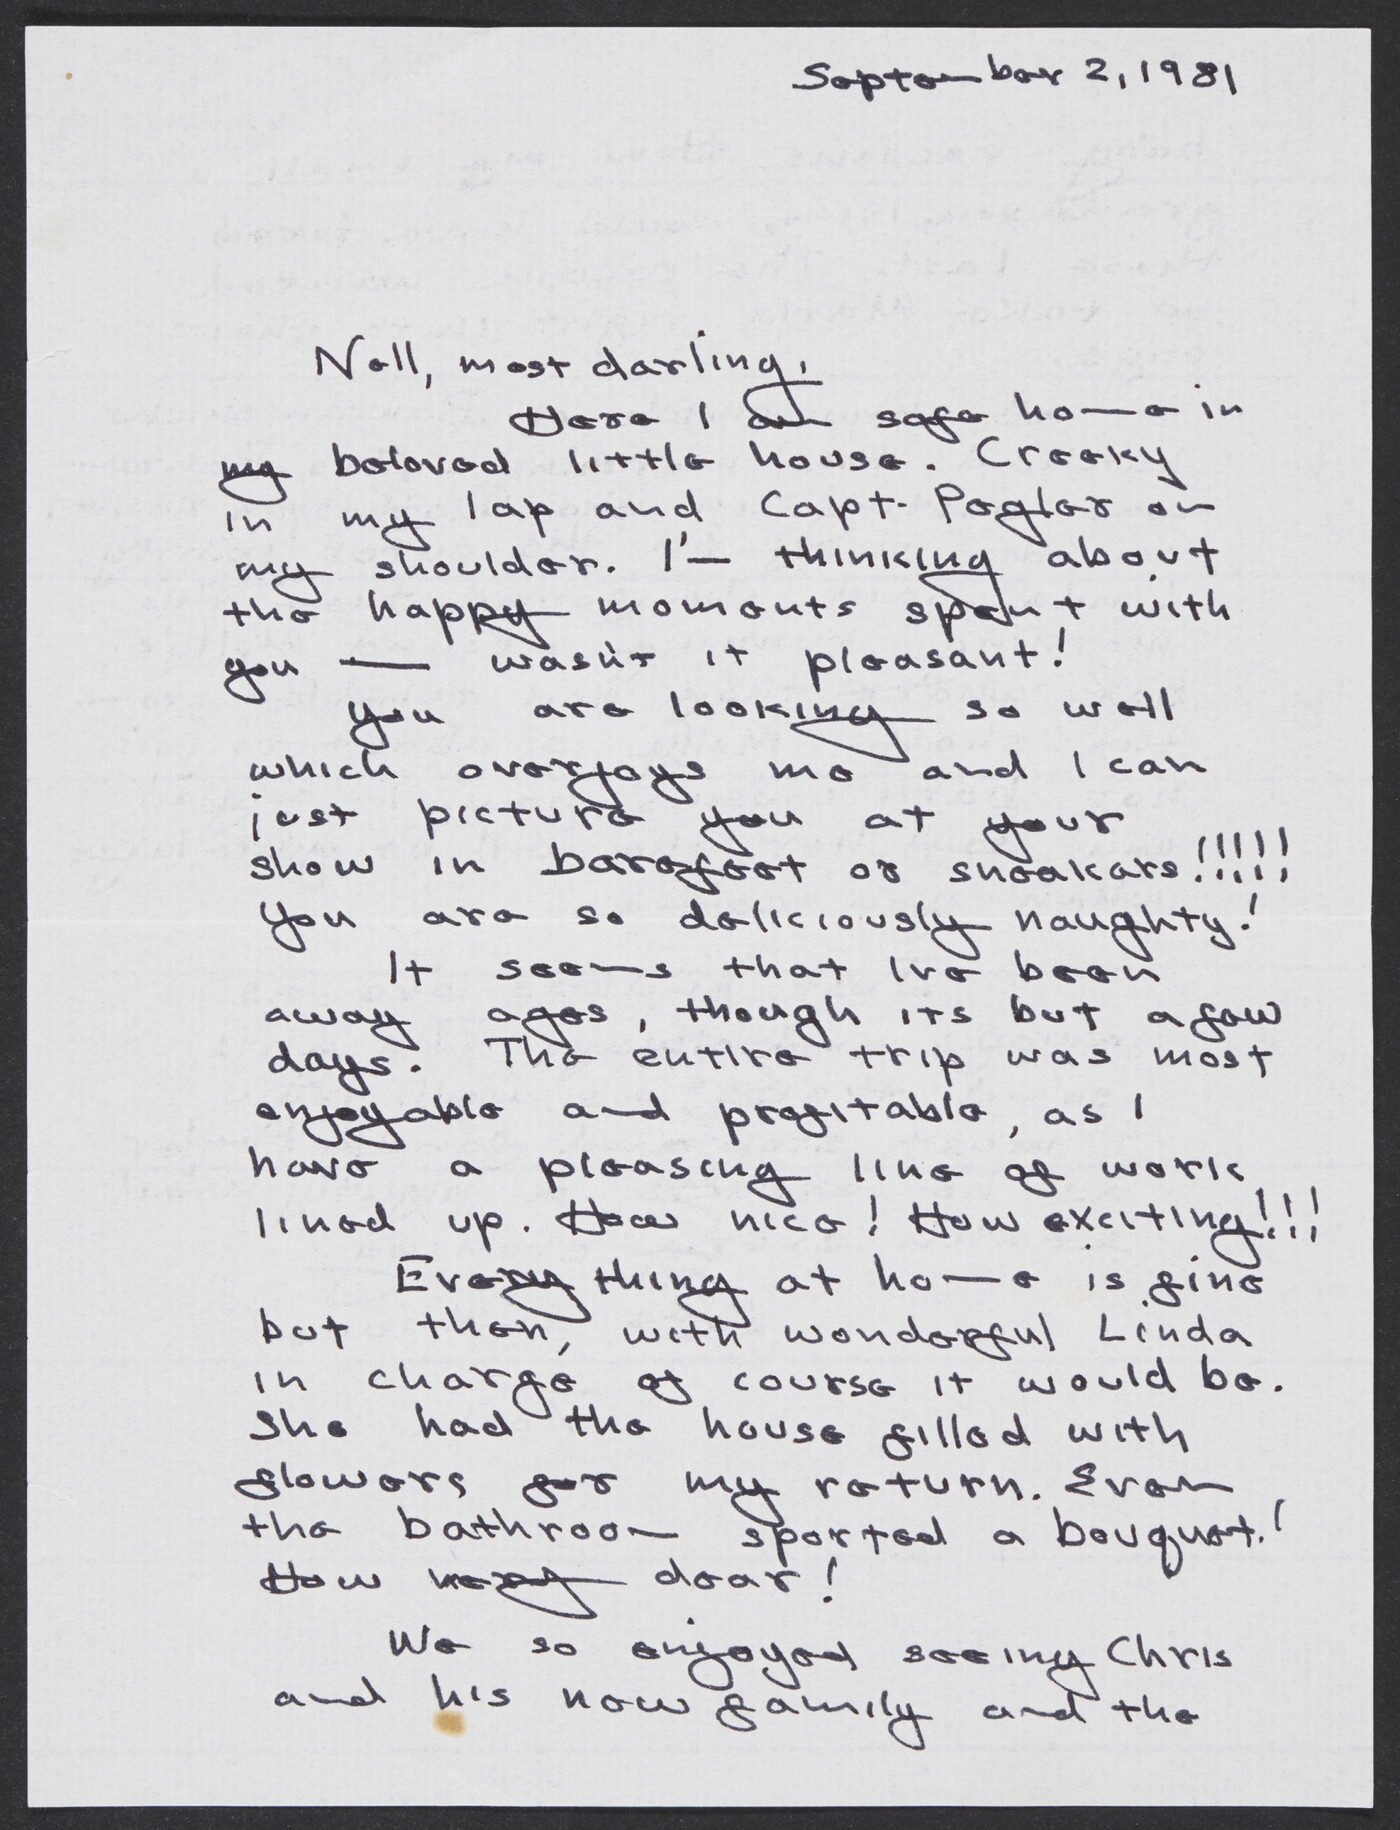 September 2, 1981
Nell, most darling,
Here I am safe home in
my beloved little house. Creeky
in my lap and Capt. Pegler on
my shoulder. I'm thinking about
the happy moments spent with
you — wasn't it pleasant!
You are looking so well
which overjoys me and I can
just picture you at your
show in barefoot or sneakers!!!!!
You are so deliciously naughty!
It seems that Ive been
away ages, though its but a few
days. The entire trip was most
enjoyable and profitable, as I
have a pleasing line of work
lined up. How nice! How exciting!!!
Every thing at home is fine
but then, with wonderful Linda
in charge of course it would be.
She had the house filled with
flowers for my return. Even
the bathroom sported a bouquet!
How very dear!
We so enjoyed seeing Chris
and his new family and the